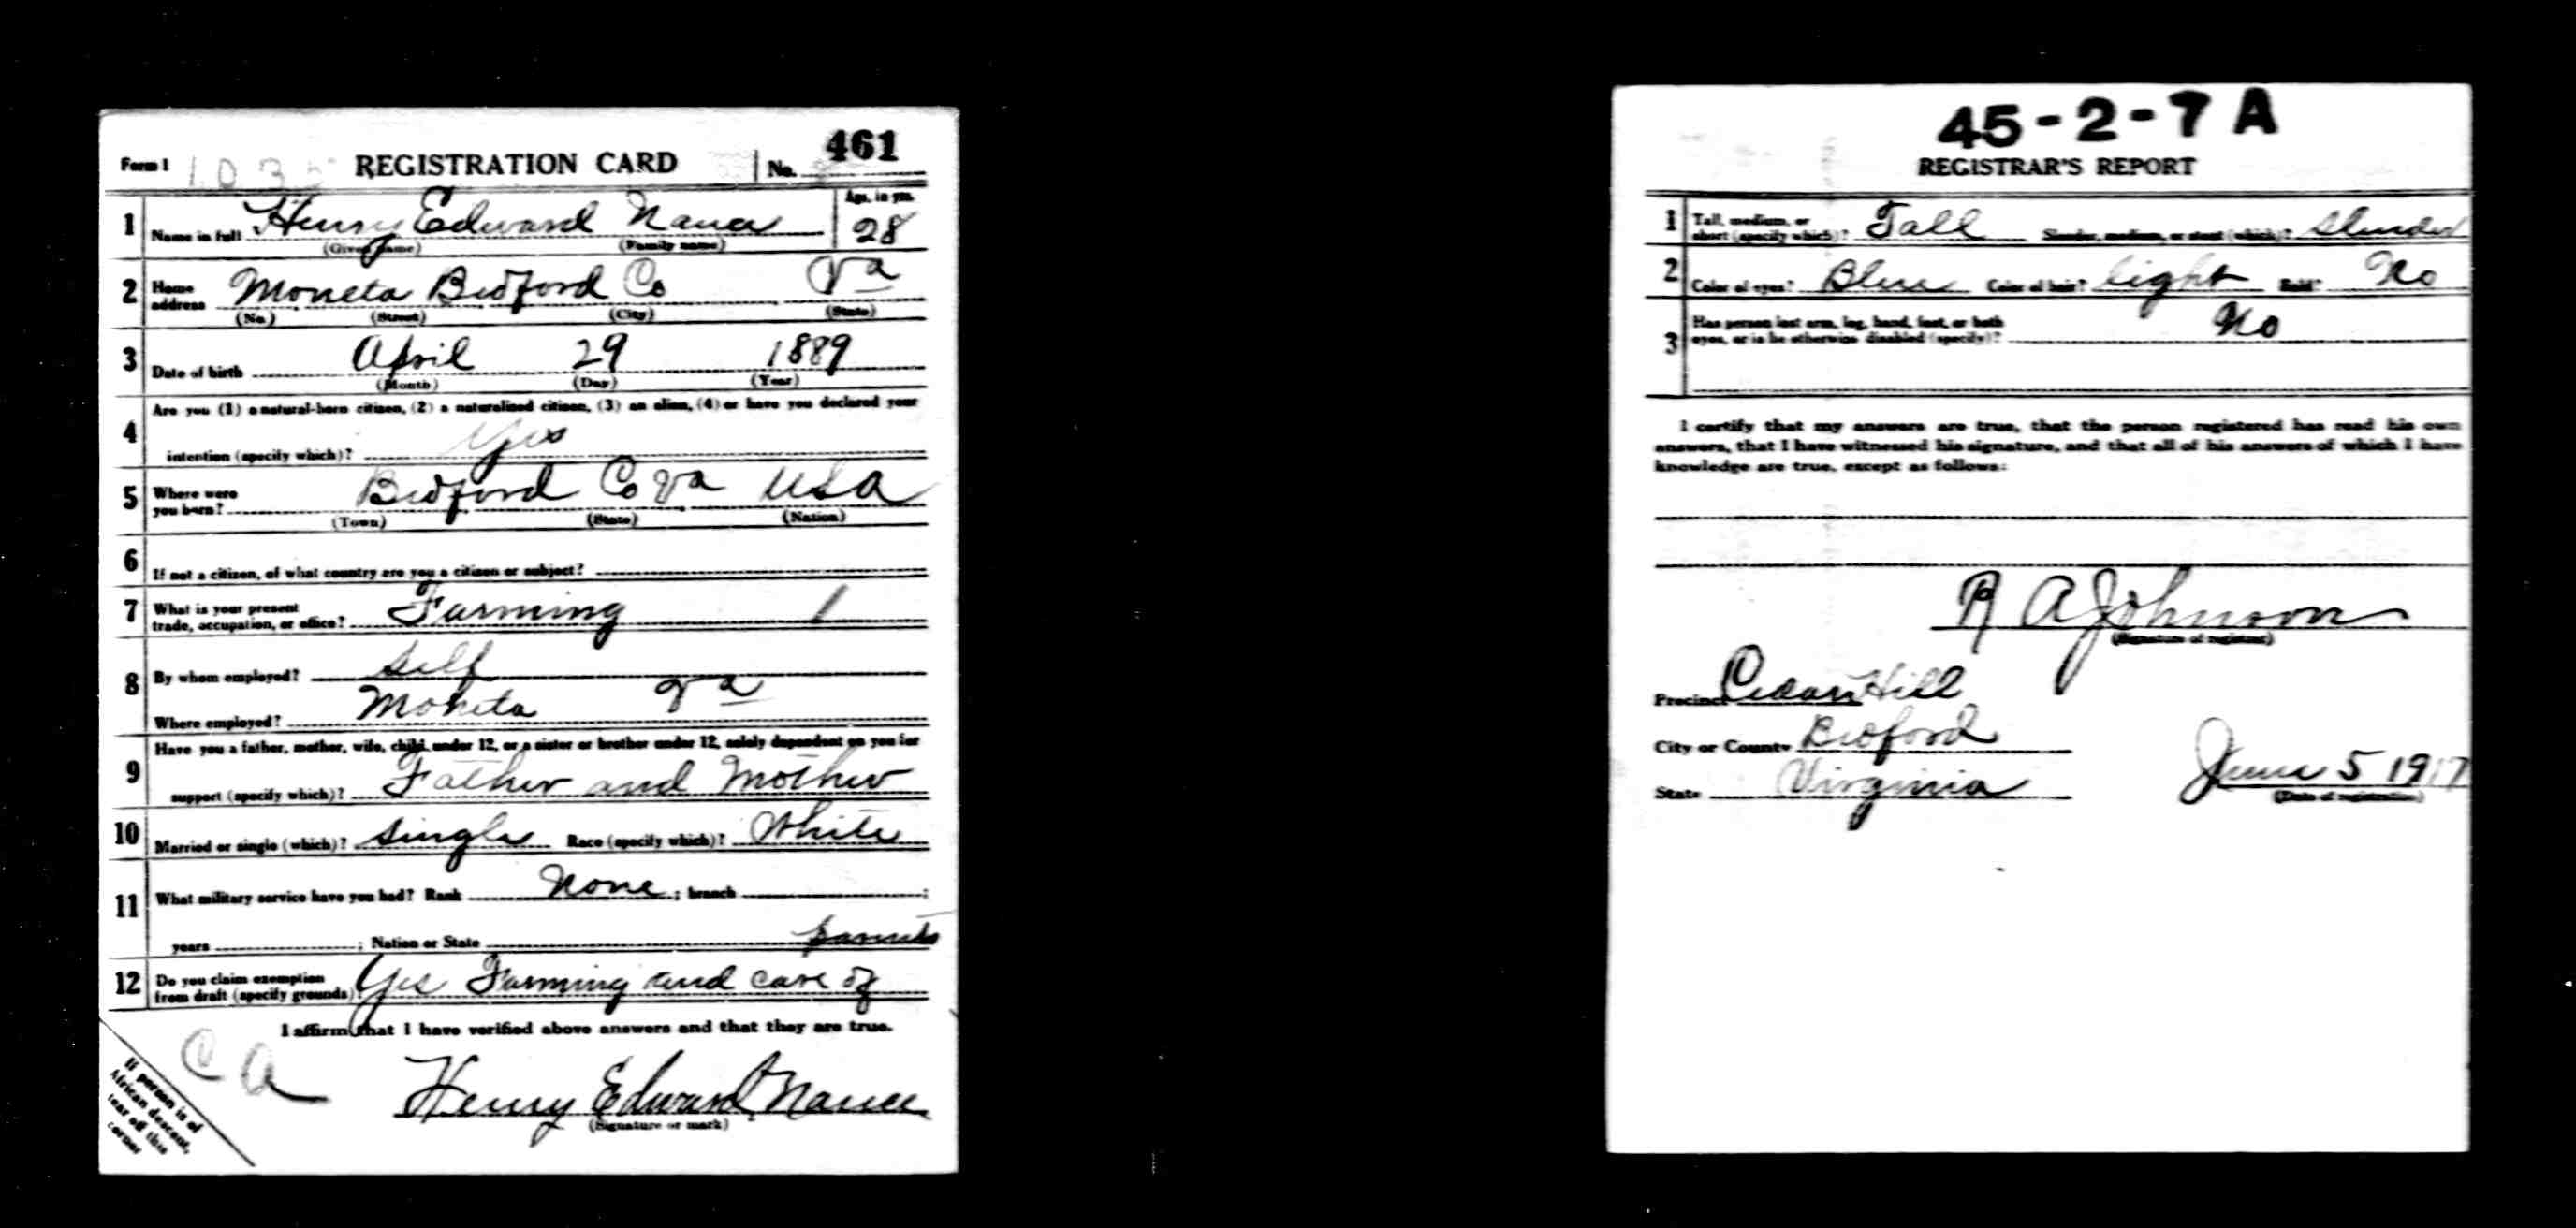 461
Form 1 REGISTRATION CARD No.
Age, in yrs.
1 Name in full Henry Edward Nance 28
(Given name) (Family name)
2 Home address Moneta Bedford Co Va
(No.) (Street) (City) (State)
3 Date of birth April 29 1889
(Month) (Day) (Year)
Are you (1) a natural-born citizen, (2) a naturalized citizen, (3) an alien, (4) or have you declared your
4 intention (specify which)? Yes
5 Where were you born? Bedford Co Va USA
(Town) (State) (Nation)
6 If not a citizen, of what country are you a citizen or subject?
7 What is your present trade, occupation, or office? Farming 1
8 By whom employed? Self
Where employed? Moneta Va
Have you a father, mother, wife, child under 12, or a sister or brother under 12, solely dependent on you for
9 support (specify which)? Father and Mother
10 Married or single (which)? Single Race (specify which)? White
11 What military service have you had? Rank None ; branch ;
years ; Nation or State
Parents
12 Do you claim exemption from draft (specify grounds)? Yes Farming and care of
I affirm that I have verified above answers and that they are true.
C A
Henry Edward Nance
(Signature or mark)
If person is of
African descent,
tear off this
corner
45-2-7 A
REGISTRAR'S REPORT
1 Tall, medium, or short (specify which)? Tall Slender, medium, or stout (which)? Slender
2 Color of eyes? Blue Color of hair? light Bald? No
3 Has person lost arm, leg, hand, foot, or both eyes, or is he otherwise disabled (specify)? No
I certify that my answers are true, that the person registered has read his own
answers, that I have witnessed his signature, and that all of his answers of which I have
knowledge are true, except as follows:
R A Johnson
(Signature of registrar)
Precinct Cedar Hill
City or County Bedford
State Virginia June 5 1917
(Date of registration)